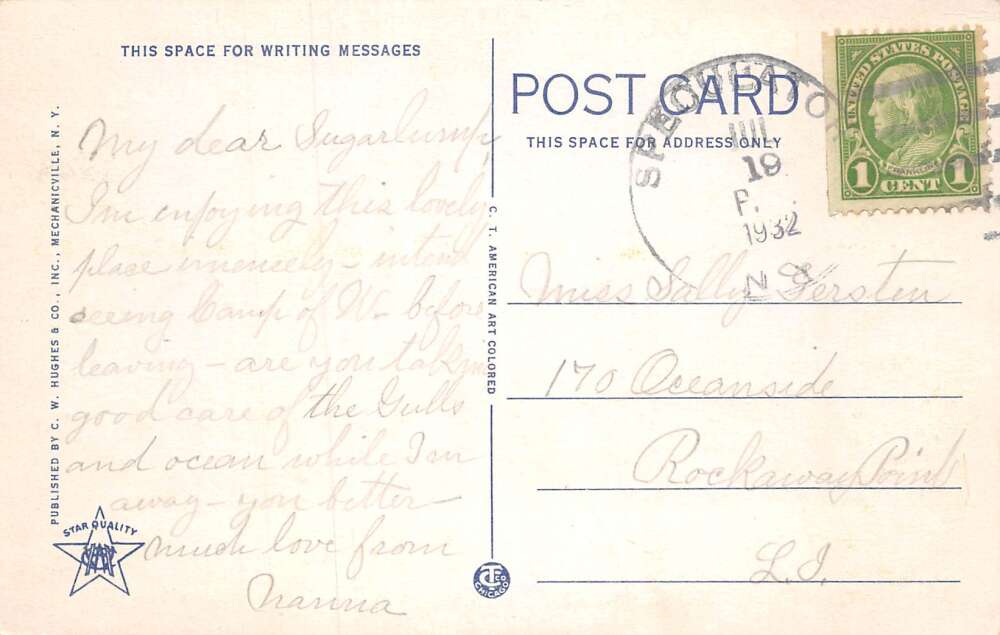 THIS SPACE FOR WRITING MESSAGES
My dear Sugarlump,
I'm enjoying this lovely
place imensely - intend
seeing Camp of W- before
leaving - are you takin
good care of the Gulls
and ocean while I'm
away - you better -
much love from
Nanna
PUBLISHED BY C. W. HUGHES & CO., INC., MECHANICVILLE, N. Y.
STAR QUALITY
C. T. AMERICAN ART COLORED
CT CO
CHICAGO
POST CARD
THIS SPACE FOR ADDRESS ONLY
SPECULATOR
JUL
19
P.
1932
N
UNITED STATES POSTAGE
FRANKLIN
1 CENT 1
Miss Sally Gersten
170 Oceanside
Rockaway Point
L.I.